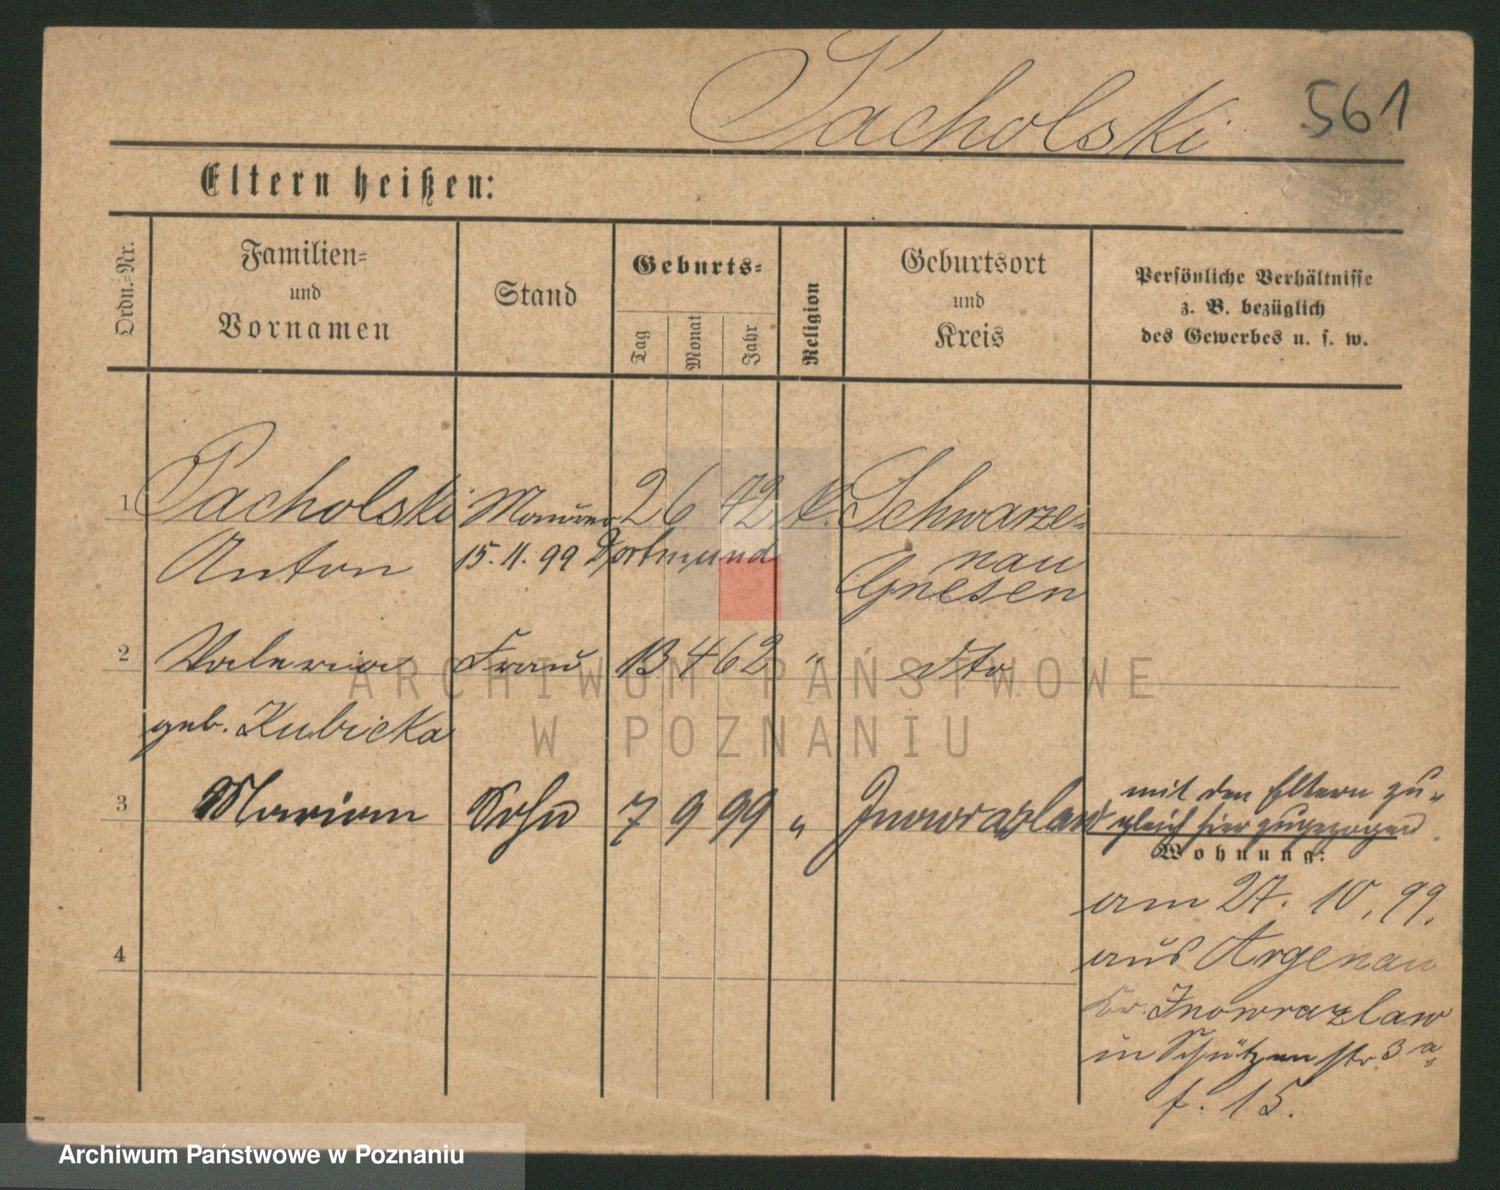 Pacholski 561
Eltern heißen:
Ordn.-Nr.
Familien-
und
Vornamen
Stand
Geburts-
Tag
Monat
Jahr
Religion
Geburtsort
und
Kreis
Persönliche Verhältnisse
z. B. bezüglich
des Gewerbes u. s. w.
1 Pacholski Maurer 2 6 72 k. Schwarze-
nau
Anton 15. 11. 99 Dortmund Gnesen
2 Valeria Frau 13 4 62 " dto
geb. Kubicka
3 Marian Sohn 7 9 99 " Inowrazlaw mit den Eltern zu-
gleich hier zugezogen
Wohnung:
am 27. 10. 99.
aus Argenau
4
Kr. Inowrazlaw
in Schützenstr 3a
f. 15.
ARCHIWUM PAŃSTWOWE
W POZNANIU
Archiwum Państwowe w Poznaniu